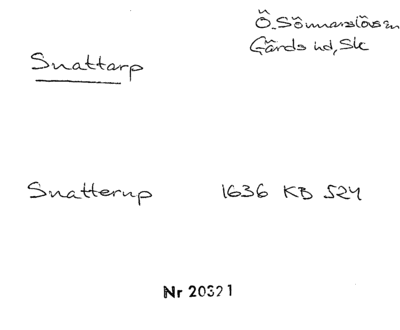 Ö. Sönnarslövs sn
Gärds hd, Sk
Snattarp
Snatterup 1636 KB 524
Nr 20321